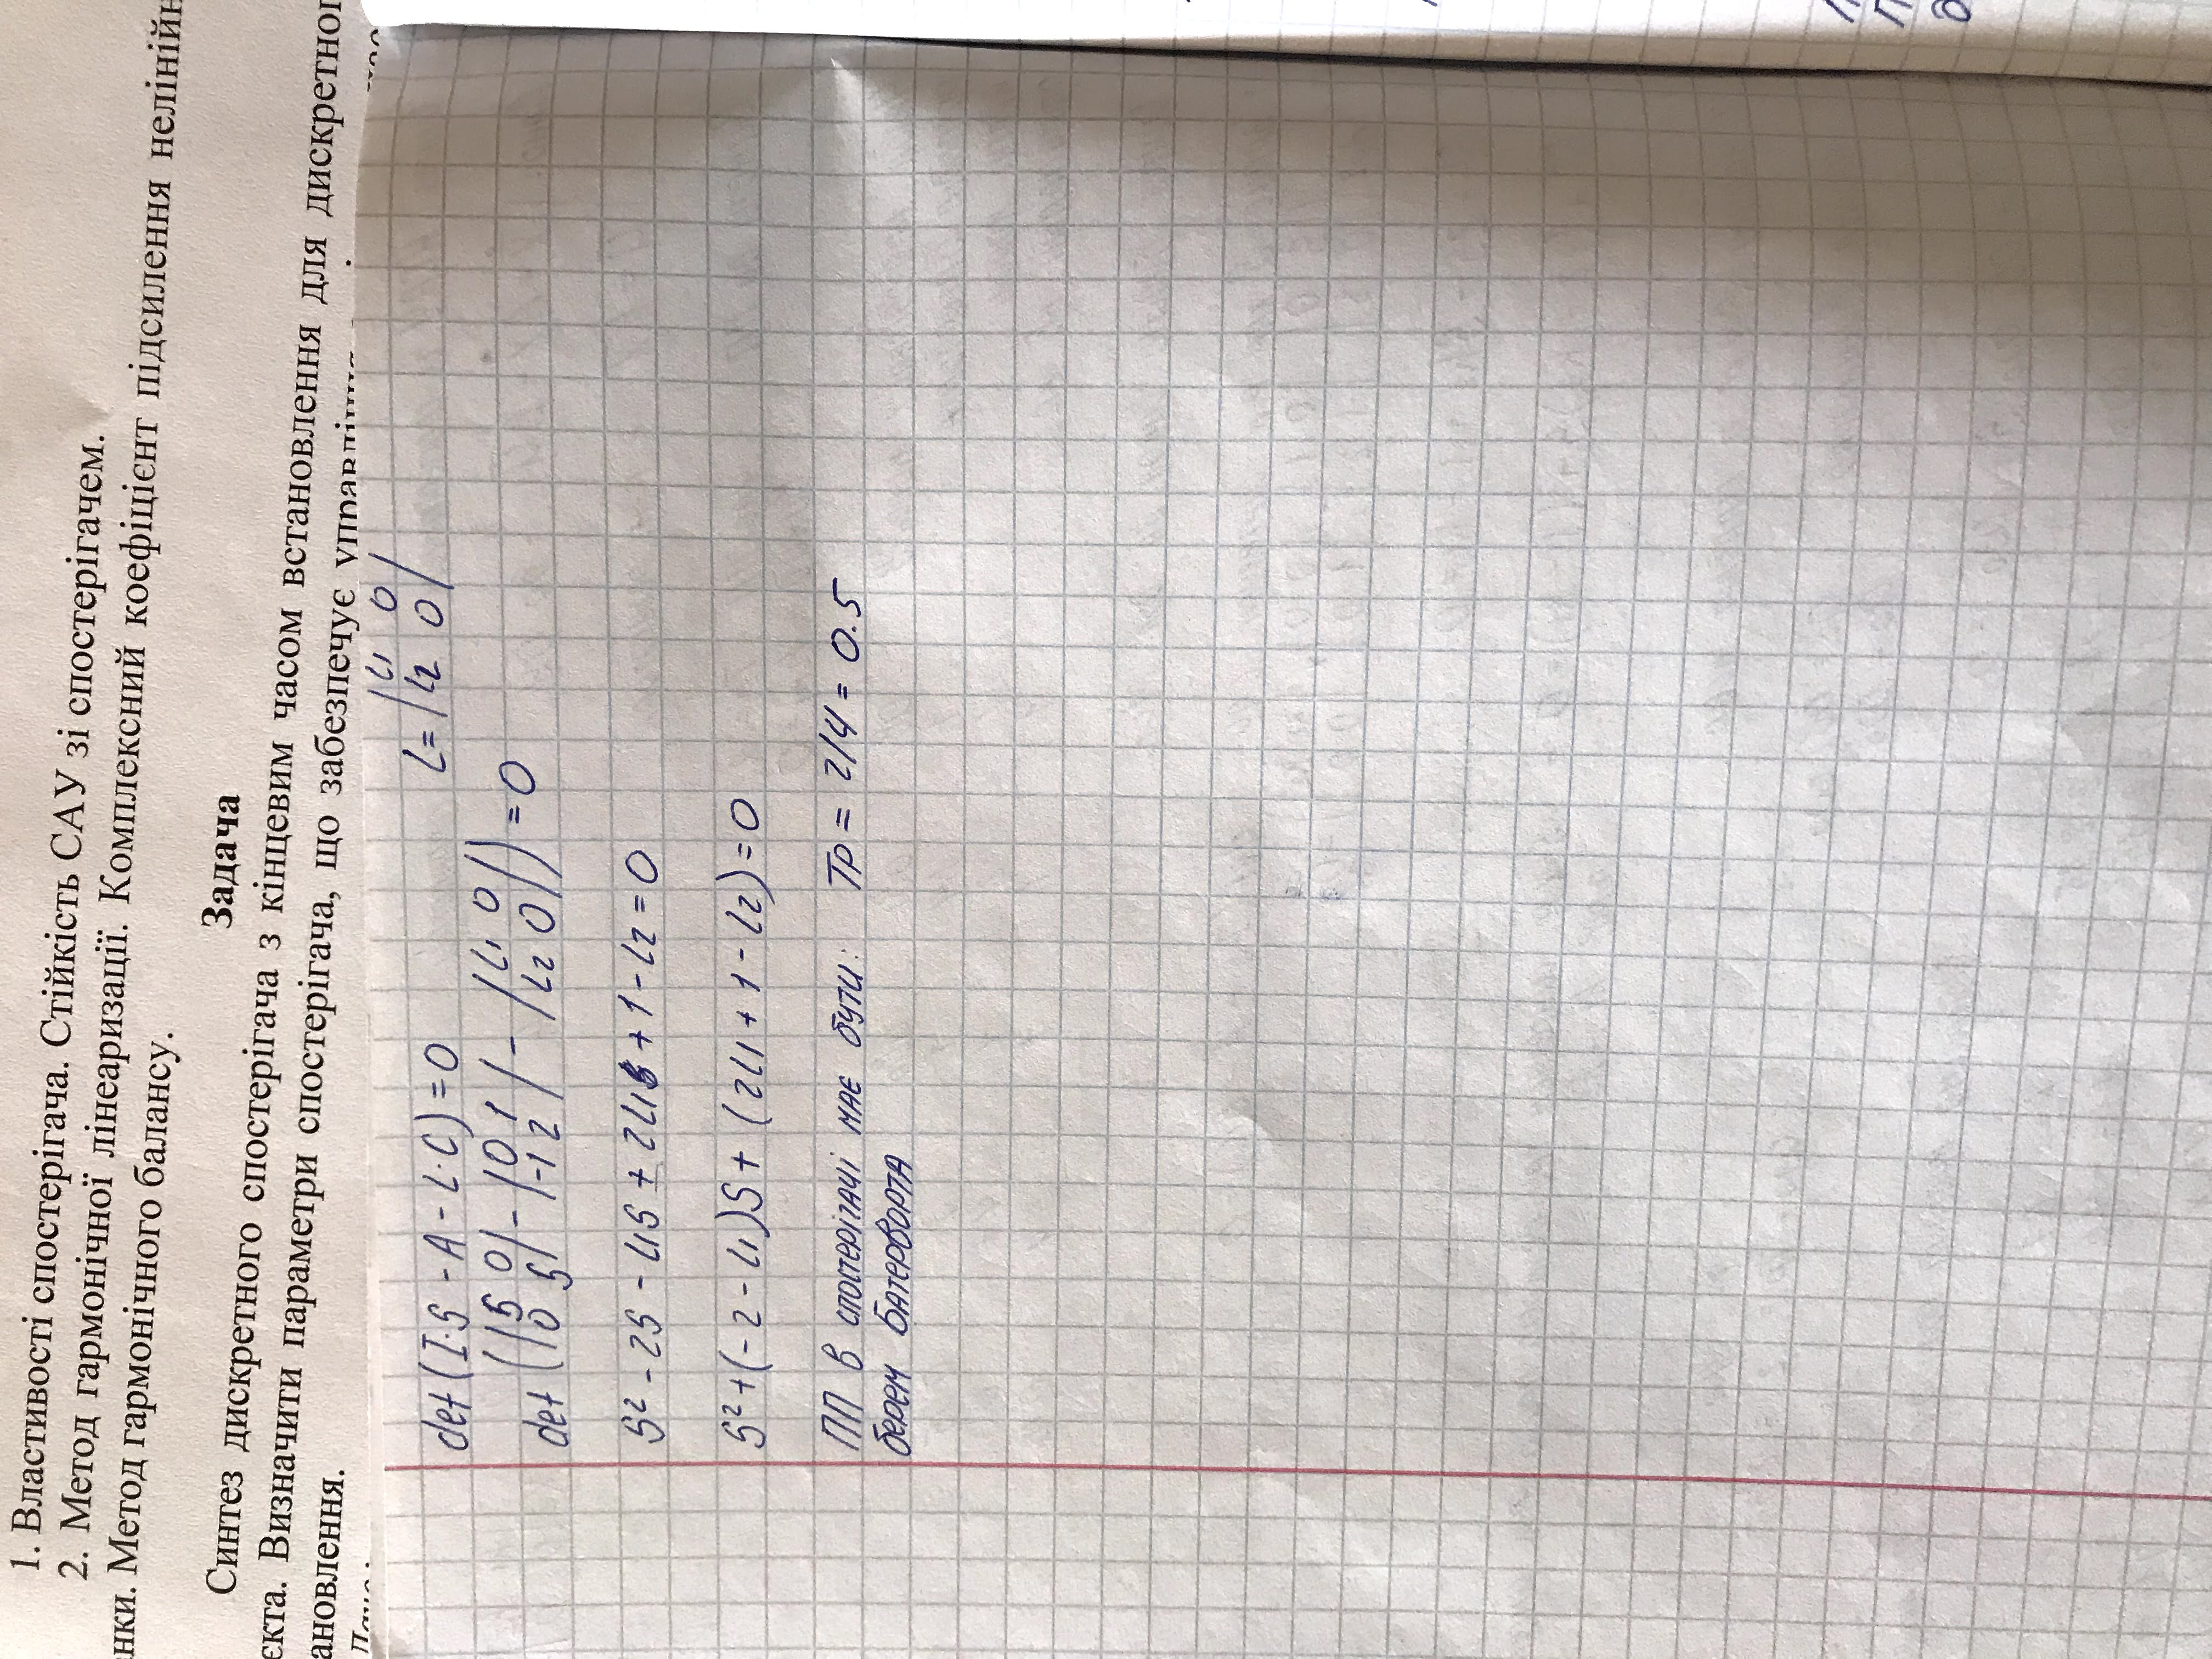 1. Властивості спостерігача. Стійкість САУ зі спостерігачем.
2. Метод гармонічної лінеаризації. Комплексний коефіцієнт підсилення нелінійн
нки. Метод гармонічного балансу.
Задача
Синтез дискретного спостерігача з кінцевим часом встановлення для дискретног
єкта. Визначити параметри спостерігача, що забезпечує управління
ановлення.
det (I·S - A - L·C) = 0
L = |L1 0|
|L2 0|
det (|S 0| - |0 1| - |L1 0|) = 0
|0 S| |-1 2| |L2 0|
S² - 2S - L1S + 2L1 + 1 - L2 = 0
S² + (-2 - L1)S + (2L1 + 1 - L2) = 0
ПП в спостерігачі має бути: Тр = 2/4 = 0.5
берем Батерворта